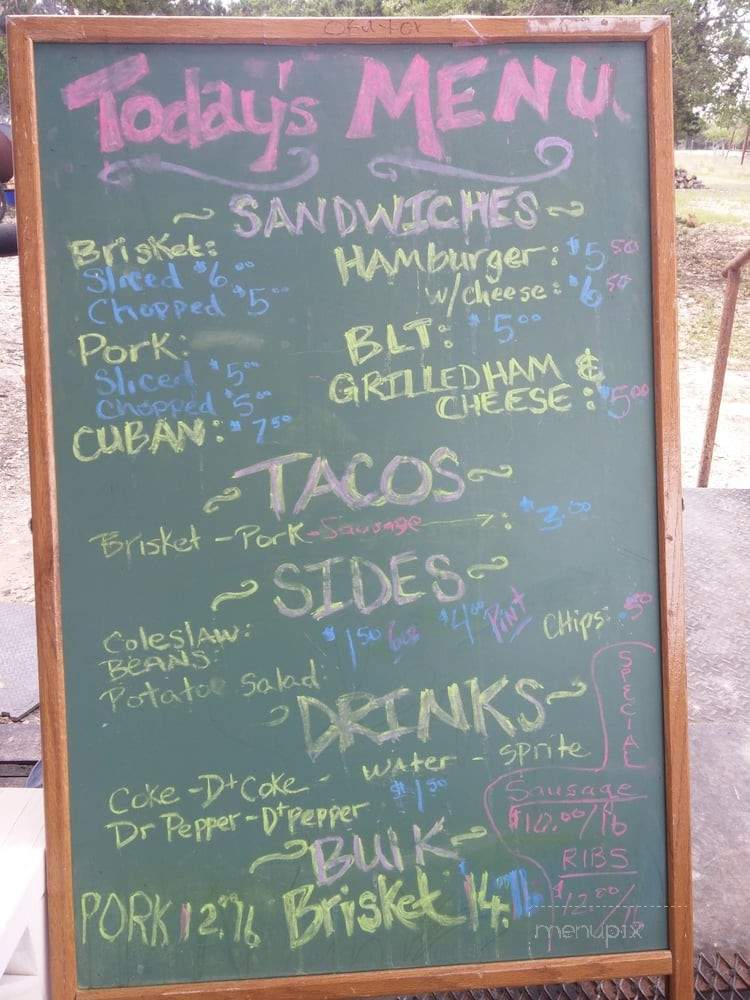 Today's MENU
~ SANDWICHES ~
Brisket:
Sliced $6.00
Chopped $5.00
Pork:
Sliced $5.00
Chopped $5.00
CUBAN: $7.50
HAMburger: $5.50
w/cheese: $6.50
BLT: $5.00
GRILLED HAM &
CHEESE: $5.00
~ TACOS ~
Brisket - Pork - Sausage → : $3.00
~ SIDES ~
Coleslaw:
BEANS:
Potatoe Salad:
$1.50 6oz $4.00 Pint
CHips: .50
~ DRINKS ~
water - sprite
Coke - Dt Coke -
Dr Pepper - Dt pepper
$1.50
SPECIAL
Sausage
$10.00/lb
RIBS
$12.00/lb
~ BUlK ~
PORK 12.00/lb
Brisket 14.00/lb
menupix